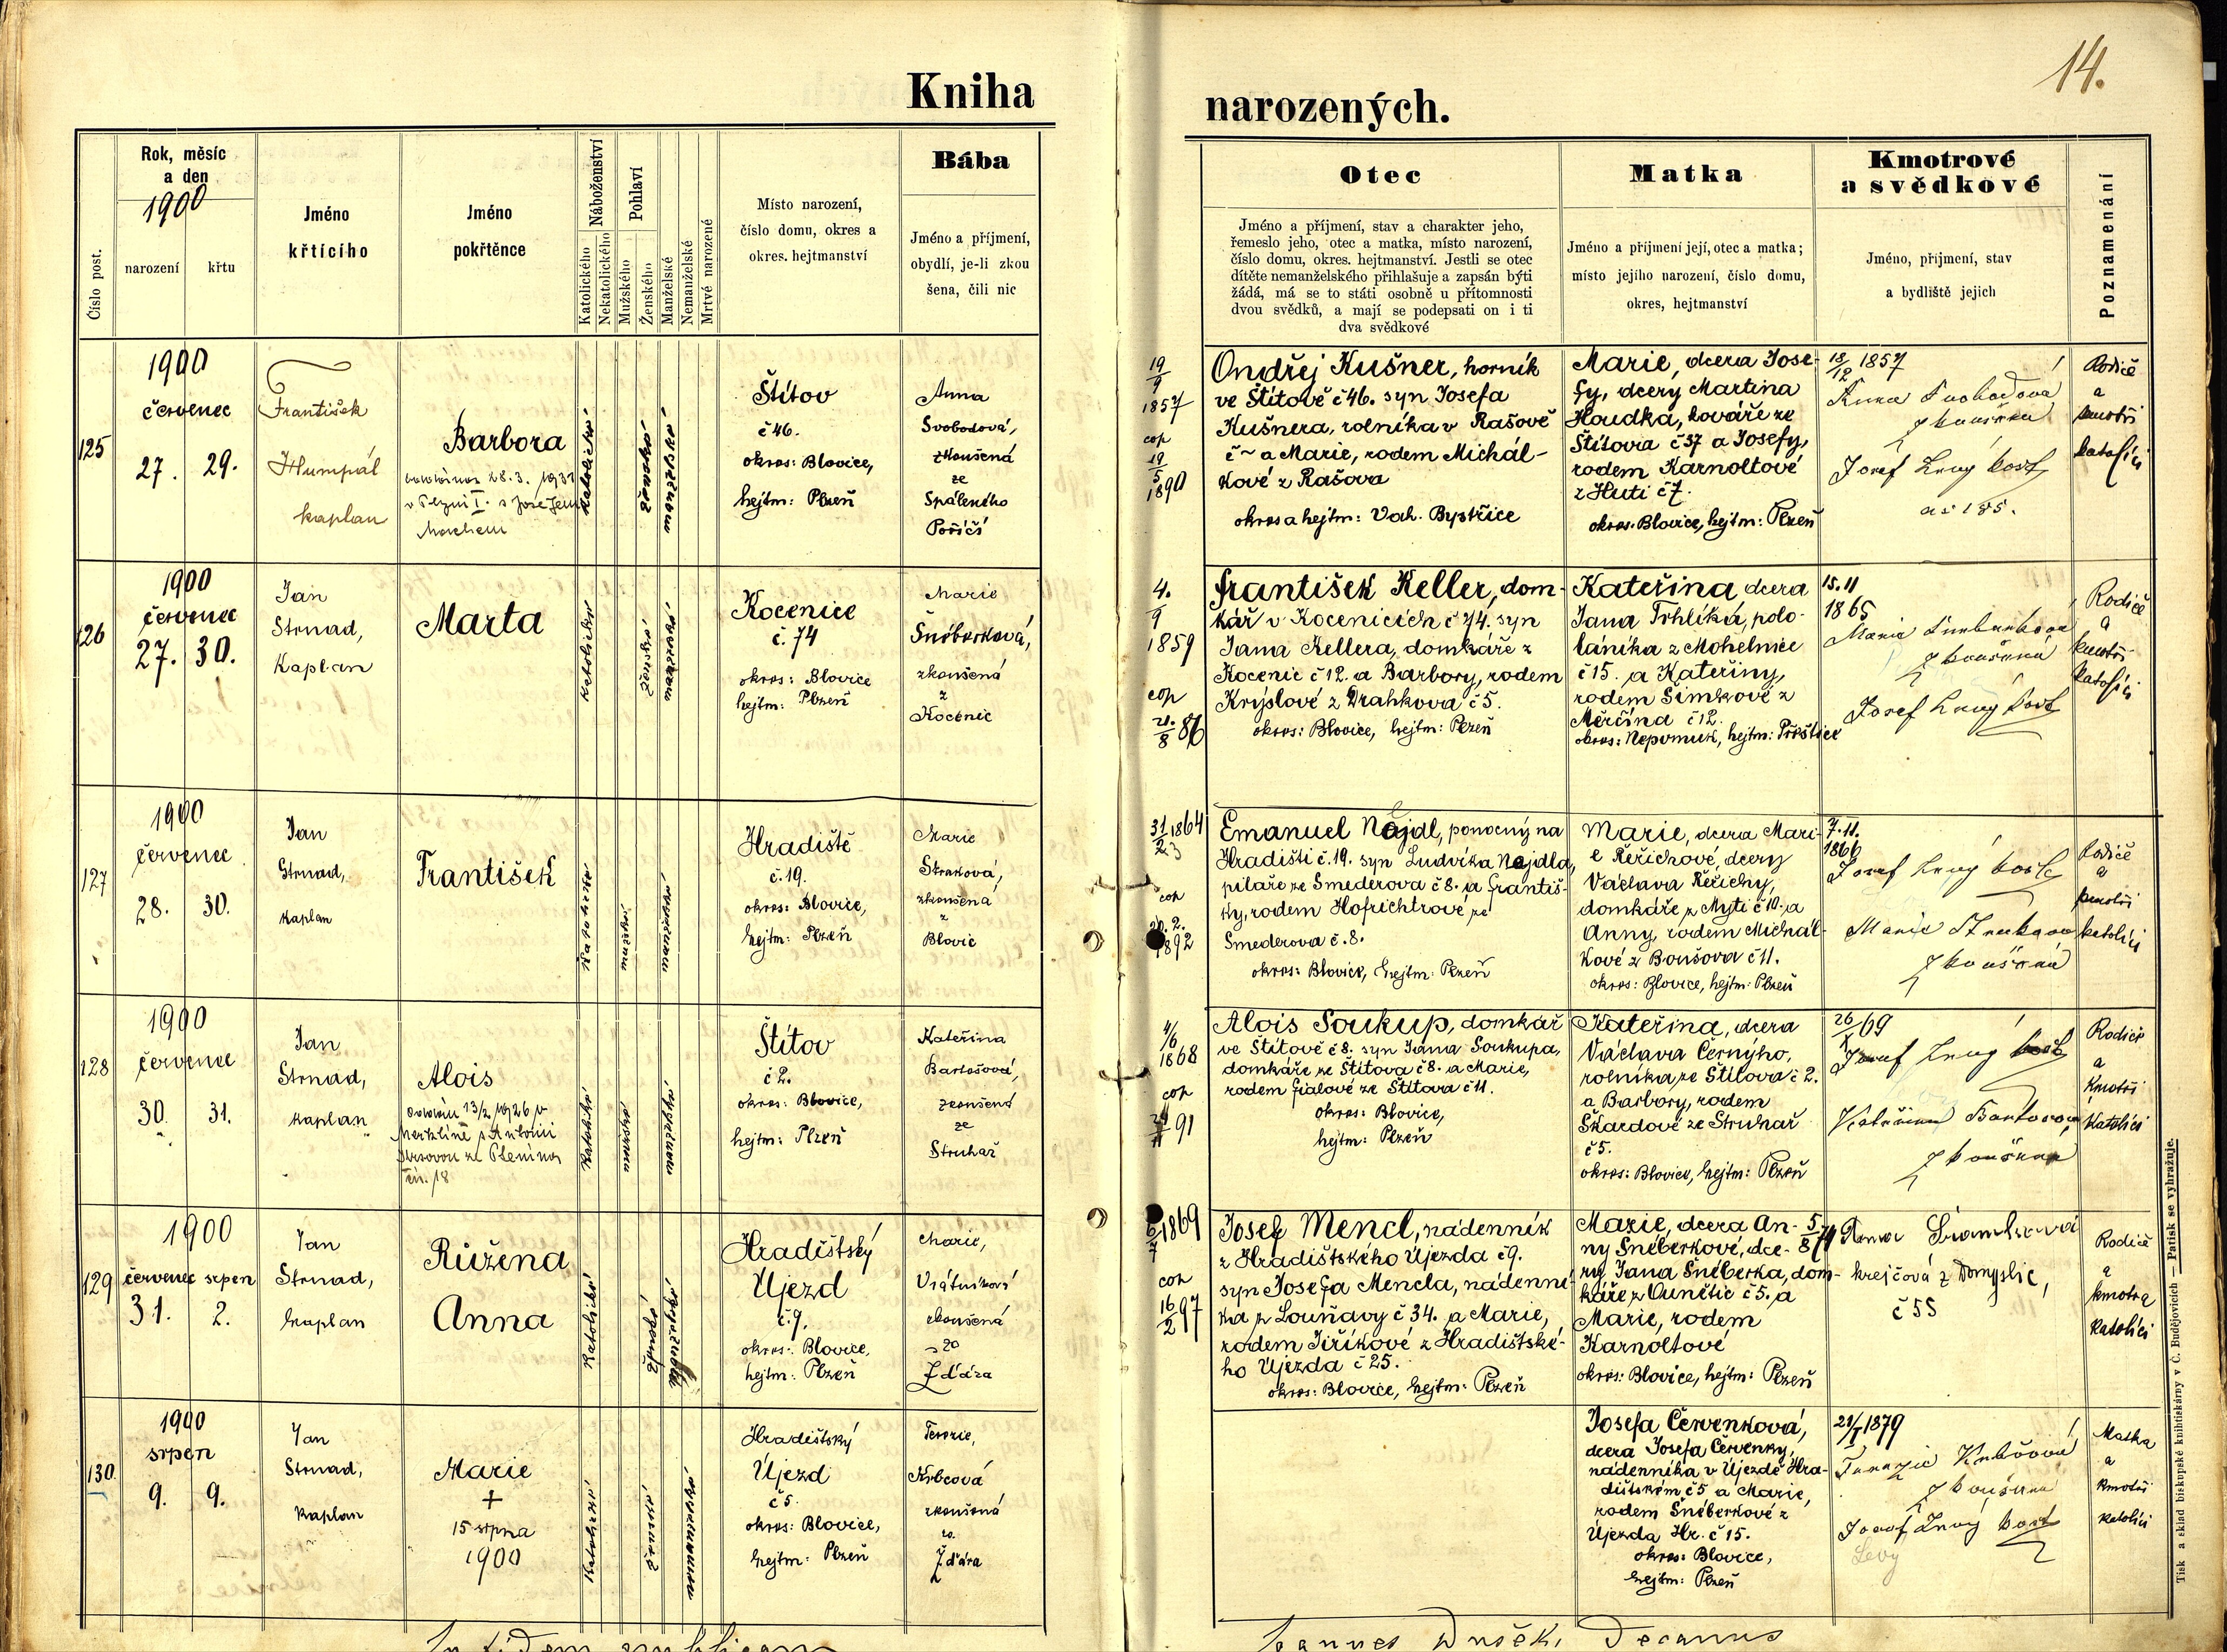 14.
Kniha
narozených.
Číslo post.
Rok, měsíc
a den
1900
narození
křtu
Jméno
křtícího
Jméno
pokřtěnce
Náboženství
Katolického
Nekatolického
Pohlaví
Mužského
Ženského
Manželské
Nemanželské
Mrtvé narozené
Místo narození,
číslo domu, okres a
okres. hejtmanství
Bába
Jméno a příjmení,
obydlí, je-li zkou
šena, čili nic
Otec
Jméno a příjmení, stav a charakter jeho,
řemeslo jeho, otec a matka, místo narození,
číslo domu, okres. hejtmanství. Jestli se otec
dítěte nemanželského přihlašuje a zapsán býti
žádá, má se to státi osobně u přítomnosti
dvou svědků, a mají se podepsati on i ti
dva svědkové
Matka
Jméno a příjmení její, otec a matka;
místo jejího narození, číslo domu,
okres, hejtmanství
Kmotrové
a svědkové
Jméno, příjmení, stav
a bydliště jejich
Poznamenání
125
1900
červenec
27. 29.
František
Humpál
kaplan
Barbora
28.3. 1931
v Plzni I. s
katolické
ženské
manželské
Štítov
č 46.
okres: Blovice,
hejtm: Plzeň
Anna
Svobodová,
zkoušená
ze
Spáleného
Poříčí
19
9
1857
cop
19
5
1890
Ondřej Kušner, horník
ve Štítově č 46. syn Josefa
Kušnera, rolníka v Rašově
č ~ a Marie, rodem Michál-
kové z Rašova
okres a hejtm: Val. Bystřice
Marie, dcera Jose-
fy, dcery Martina
Houdka, kováře ze
Štítova č 37 a Josefy,
rodem Karnoltové
z Huti č 7.
okres: Blovice, hejtm: Plzeň
18/12 1857
Anna Svobodová
zkoušená
Josef Levý kost.
Rodiče
a
kmotři
katolíci
126
1900
červenec
27. 30.
Jan
Strnad,
Kaplan
Marta
katolické
ženské
manželské
Kocenice
č. 74
okres: Blovice
hejtm: Plzeň
Marie
Šnéberková,
zkoušená
z
Kocenic
4.
9
1859
cop
21.
8 86
František Keller, dom-
kář v Kocenicích č 74. syn
Jana Kellera, domkáře z
Kocenic č 12. a Barbory, rodem
Krýslové z Drahkova č 5.
okres: Blovice, hejtm: Plzeň
Kateřina dcera
Jana Trhlíka, polo-
láníka z Mohelnice
č 15. a Kateřiny,
rodem Šimkové z
Měrčína č 12.
okres: Nepomuk, hejtm: Přeštice
15.11
1865
Marie Šnéberková
zkoušená
Josef Levý kost
Rodiče
a
kmotři
katolíci
127
1900
červenec
28. 30.
Jan
Strnad,
kaplan
František
katolické
mužské
manželské
Hradiště
č. 19.
okres: Blovice,
hejtm: Plzeň
Marie
Straková,
zkoušená
z
Blovic
31 1864
cop
1892
Emanuel Nejdl, ponocný na
Hradišti č. 19. syn Ludvíka Nejdla,
pilaře ze Smederova č 8. a Františ-
ky, rodem Hofrichtrové ze
Smederova č. 8.
okres: Blovice, hejtm: Plzeň
Marie, dcera Mari-
e Řeřichové, dcery
Václava Řeřichy,
domkáře z Mýti č 10. a
Anny, rodem Michál-
kové z Boušova č 11.
okres: Blovice, hejtm: Plzeň
7.11.
1866
Josef Levý kost
Marie Straková
zkoušená
Rodiče
a
kmotři
katolíci
128
1900
červenec
30. 31.
Jan
Strnad,
kaplan
Alois
oddán 13/2 1926 v
Merklíně s Antonií
katolické
mužské
manželské
Štítov
č 2.
okres: Blovice,
hejtm: Plzeň
Kateřina
Bartošová,
zkoušená
ze
Struhař
4/6
1868
cop
91
Alois Soukup, domkář
ve Štítově č 8. syn Jana Soukupa,
domkáře ze Štítova č 8. a Marie,
rodem Fialové ze Štítova č 11.
okres: Blovice,
hejtm: Plzeň
Kateřina, dcera
Václava Černýho,
rolníka ze Štítova č 2.
a Barbory, rodem
Škardové ze Struhař
č 5.
okres: Blovice, hejtm: Plzeň
26/69
Josef Levý kost
Kateřina Bartošová
zkoušená
Rodiče
a
Kmotři
Katolíci
129
1900
červenec srpen
31. 2.
Jan
Strnad,
kaplan
Růžena
Anna
katolické
ženské
manželské
Hradištský
Újezd
č. 9.
okres: Blovice,
hejtm: Plzeň
Marie,
Vrátníková
zkoušená
ze
Žďára
1869
7
cop
16
2 97
Josef Mencl, nádenník
z Hradištského Újezda č 9.
syn Josefa Mencla, nádenní-
ka z Louňavy č 34. a Marie,
rodem Jiříkové z Hradištské-
ho Újezda č 25.
okres: Blovice, hejtm: Plzeň
Marie, dcera An-
ny Šnéberkové, dce-
ry Jana Šnéberka, dom-
káře z Čunětic č 5. a
Marie, rodem
Karnoltové
okres: Blovice, hejtm: Plzeň
5/8 74
Anna
krejčová z Domyslic,
č 55
Rodiče
a
kmotra
katolíci
130.
1900
srpen
9. 9.
Jan
Strnad,
kaplan
Marie
+
15 srpna
1900
katolické
ženské
nemanželské
Hradištský
Újezd
č 5
okres: Blovice,
hejtm: Plzeň
Terezie,
Krbcová
zkoušená
ze
Žďára
Josefa Červenková,
dcera Josefa Červenky,
nádenníka v Újezdě Hra-
dištském č 5 a Marie,
rodem Šnéberkové z
Újezda Hr. č 15.
okres: Blovice,
hejtm: Plzeň
21/I 1879
Terezie Krbcová
zkoušená
Josef Levý kost
Levý
Matka
a
kmotři
katolíci
In fidem publicam
Joannes Dušek, Decanus
Tisk a sklad biskupské knihtiskárny v Č. Budějovicích — Patisk se vyhražuje.